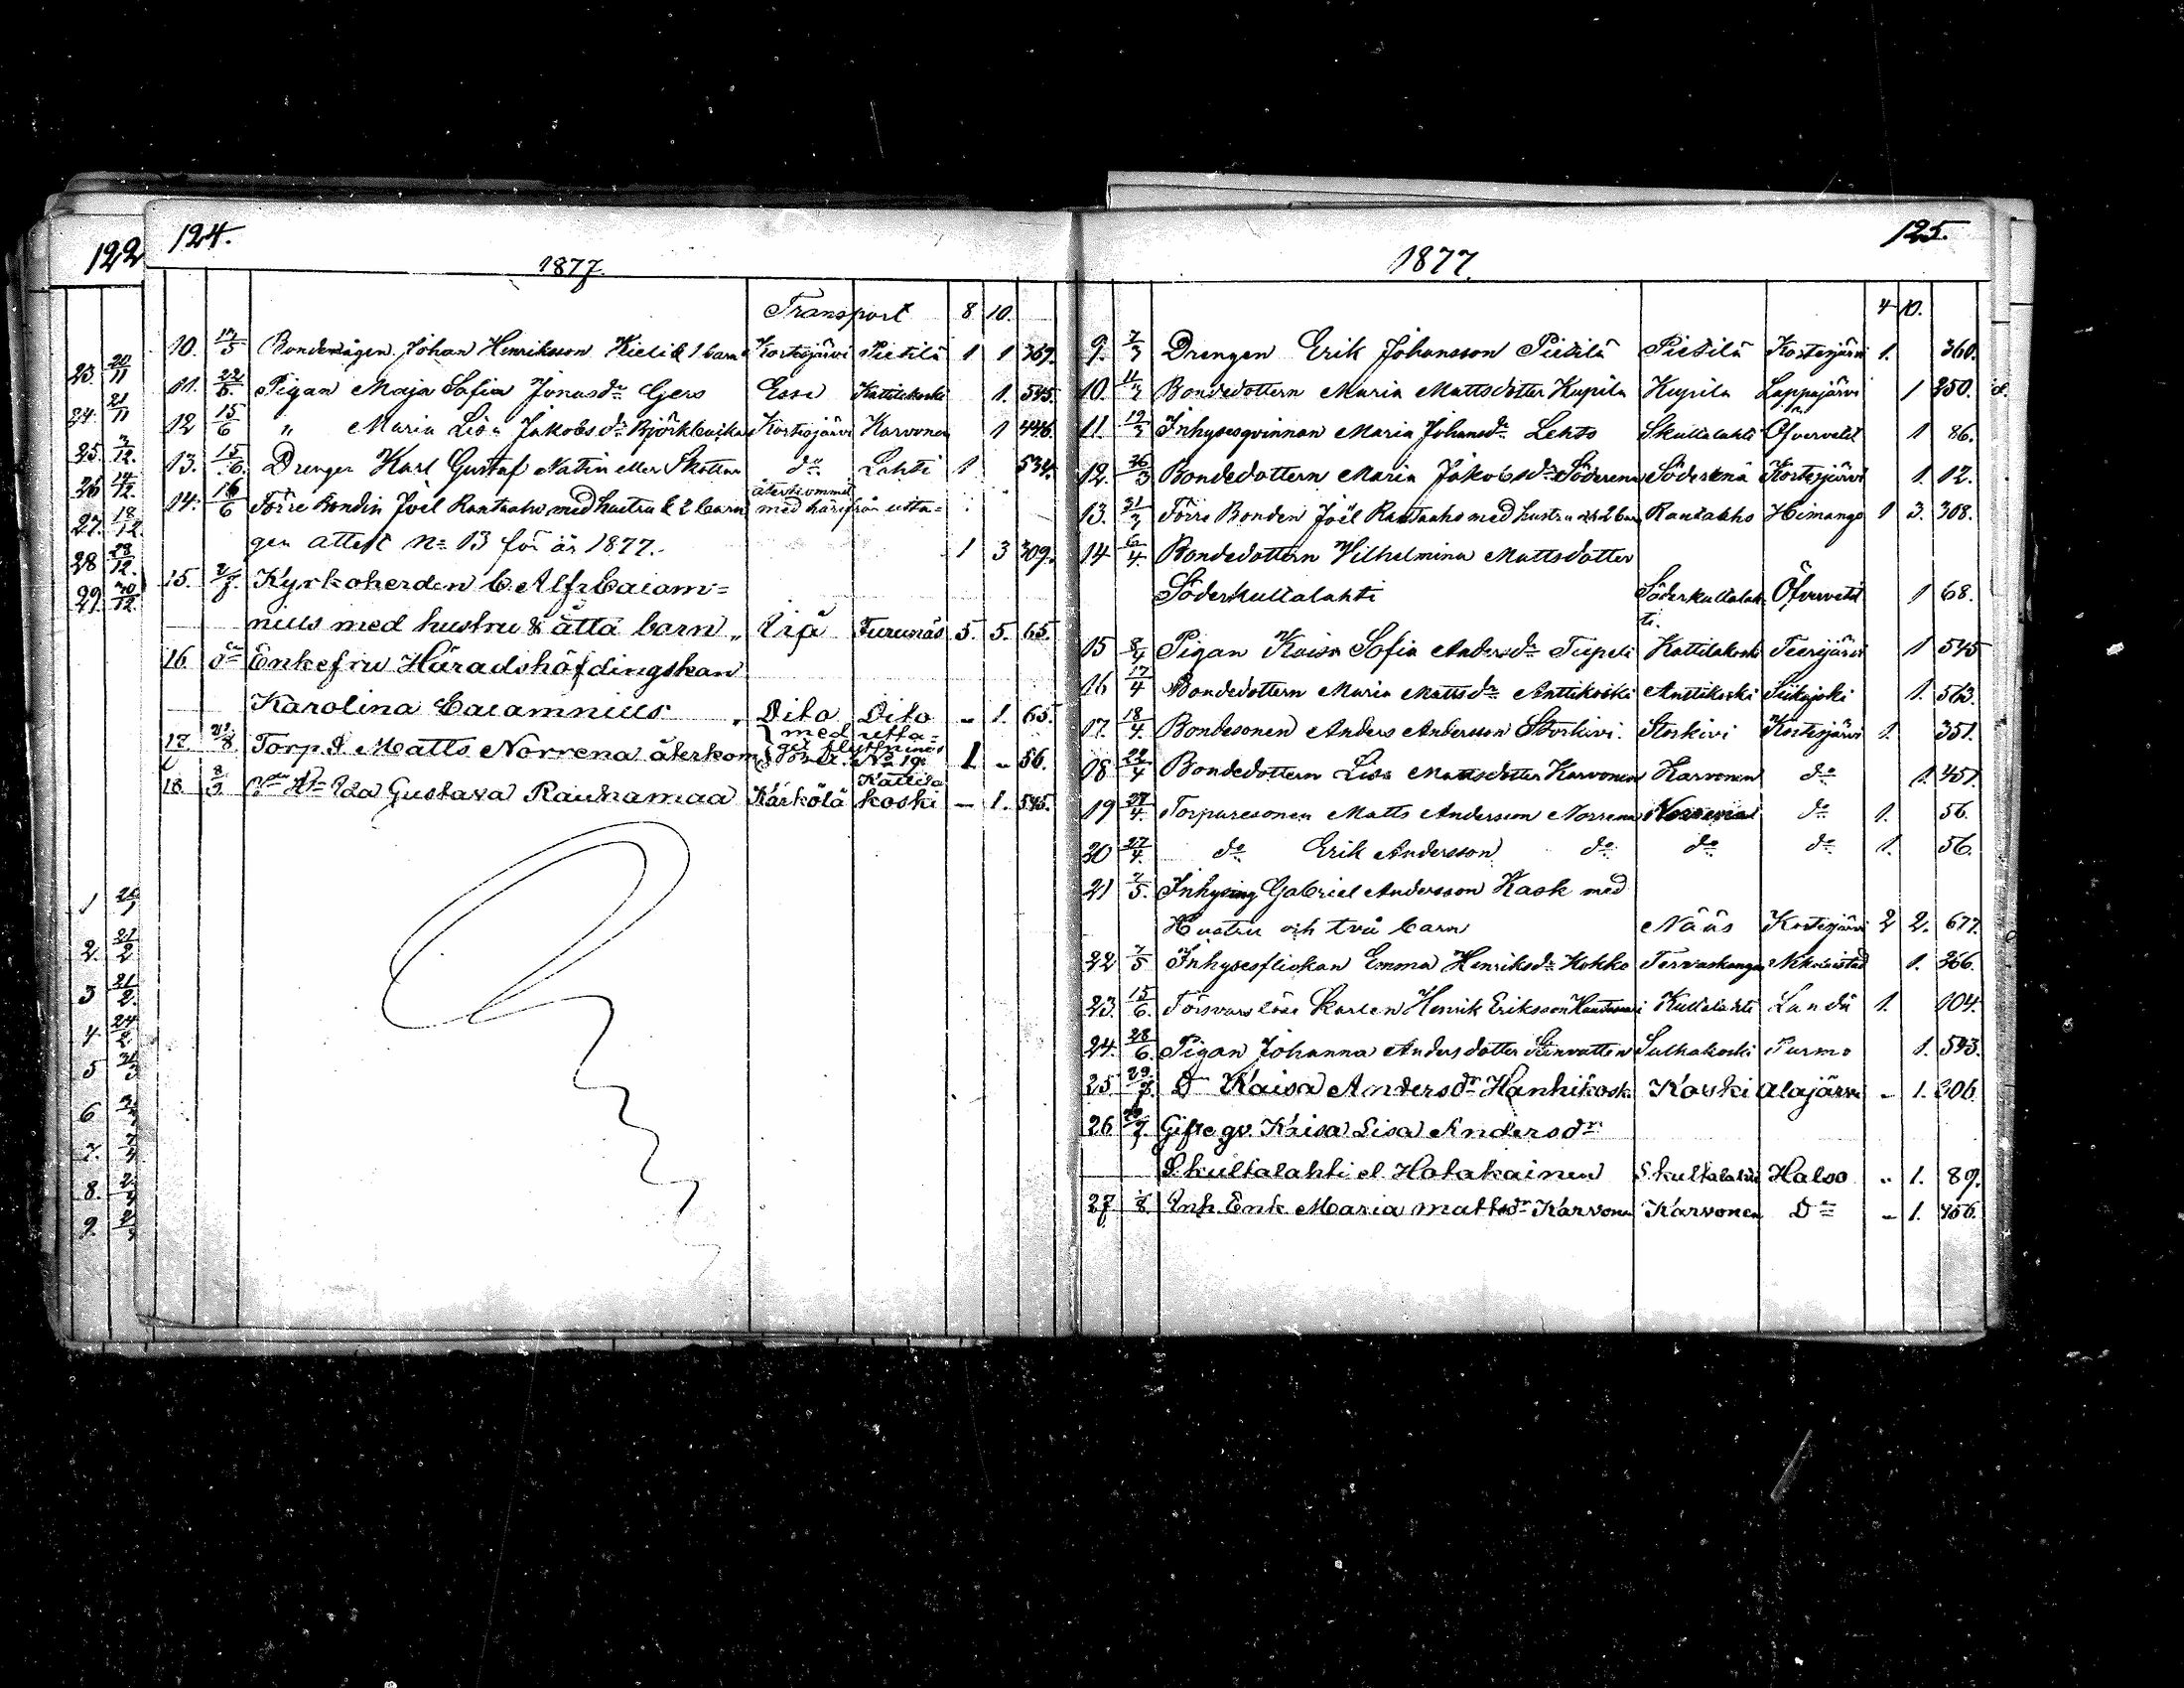 122
23. 20/11
24. 21/11
25. /12.
26 14/12.
27. 18/12.
28 28/12.
29. 30/12.
1
2. 21/2
3 21/2.
4. 24/2.
5
6
7.
8.
9.
124.
1877.
Transport 8 10.
10. 17/5 Bondemågen Johan Henriksson Kieli & 1 barn Kortesjärvi Pietilä 1 1 369.
11. 22/5. Pigan Maja Sofia Jonasdr Gers Esse Kattilakoski 1. 545.
12 15/6 " Maria Lisa Jakobsdr Björkbacka Kortesjärvi Karvonen 1 446.
13. 15/6. Drengen Karl Gustaf Natin eller Skottar do Lahti 1 534.
14. 16/6 Förre Bonden Joël Rantaaho med hustru & 2 barn återkommit med härifrån utta=
gen attest No 13 för år 1877. 1 3 309.
15. 2/7. Kyrkoherden C. Alfr. Caiam=
nius med hustru & åtta barn „ Ijå Furunäs 5. 5. 65.
16. do Enkefru Häradshöfdingskan
Karolina Caiamnius „ Dito Dito - 1. 65.
17. 21/8. Torp. S. Matts Norrena återkom med utta=
get flyttnings No 19. 1. - 56.
18. 8/9. Ida Gustava Rauhamaa Kärkölä Kattila
koski - 1. 545.
125.
1877.
4 10.
9. 7/3 Drengen Erik Johansson Pietilä Pietilä Kortesjärvi 1. 360.
10. 11/3 Bondedottern Maria Mattsdotter Kupila Kupila Lappajärvi 1 250.
11. 19/3 Inhysesqvinnan Maria Johansdr Lehto Skultalahti Öfvervetil 1 86.
12. 26/3 Bondedottern Maria Jakobsdr Söderena Söderena Kortesjärvi 1. 12.
13. 31/3 Förre Bonden Joël Rantaaho med hustru och 2 barn Rantaaho Himango 1 3. 308.
14 6/4. Bondedottern Vilhelmina Mattsdotter
Söderkultalahti Söderkultalah=
ti. Öfvervetil 1 68.
15 8/4 Pigan Kaisa Sofia Andersdr Tiipeli Kattilakoski Teerijärvi 1 545
16 17/4 Bondedottern Maria Mattsdr Anttikoski Anttikoski Siikajoki 1. 563.
17. 18/4. Bondesonen Anders Andersson Storkivi Storkivi Kortesjärvi 1. 351.
18 24/4 Bondedottern Lisa Mattsdotter Karvonen Karvonen do 1. 451.
19 27/4. Torparesonen Matts Andersson Norrena Norrena do 1. 56.
20 27/4. do Erik Andersson do do do 1. 56.
21 7/5. Inhysing Gabriel Andersson Kask med
Hustru och två barn Nääs Kortesjärvi 2 2. 677.
22 7/5 Inhysesflickan Emma Henriksdr Kokko Tervaskangas Nikolaistad 1. 366.
23. 15/6. Försvarslöse Karlen Henrik Eriksson Kultalahti Landå 1. 104.
24. 28/6. Pigan Johanna Andersdotter Stenvatten Sulkakoski Purmo 1. 543.
25. 29/7. D Kaisa Andersdr Hanhikoski Koski Alajärvi - 1. 206.
26 /7. Gifte qv. Kaisa Lisa Andersdr
S.kultalahti el. Hotakainen S.kultalahti Halso - 1. 89.
27 /8. Inh. Enk. Maria Mattsdr Karvonen Karvonen Do - 1. 456.